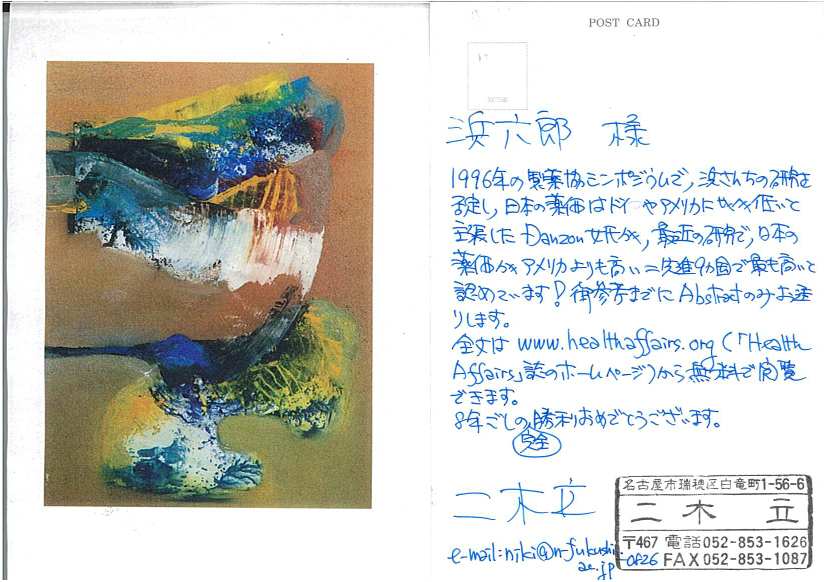 POST CARD
浜六郎 様
1996年の製薬協シンポジウムで,浜さんちの研究を
否定し,日本の薬価はドイツやアメリカに比べ低いと
主張したDanzon女氏が,最近の研究で,日本の
薬価がアメリカよりも高い=先進9カ国で最も高いと
認めています!御参考までにAbstractのみお送
りします。
全文は www.healthaffairs.org (「Health
Affairs」誌のホームページ)から無料で閲覧
できます。
8年ごしの勝利おめでとうございます。
完全
二木立
e-mail:niki@n-fukushi
ac.jp
名古屋市瑞穂区白竜町1-56-6
二木 立
〒467 電話052-853-1626
-0826 FAX052-853-1087